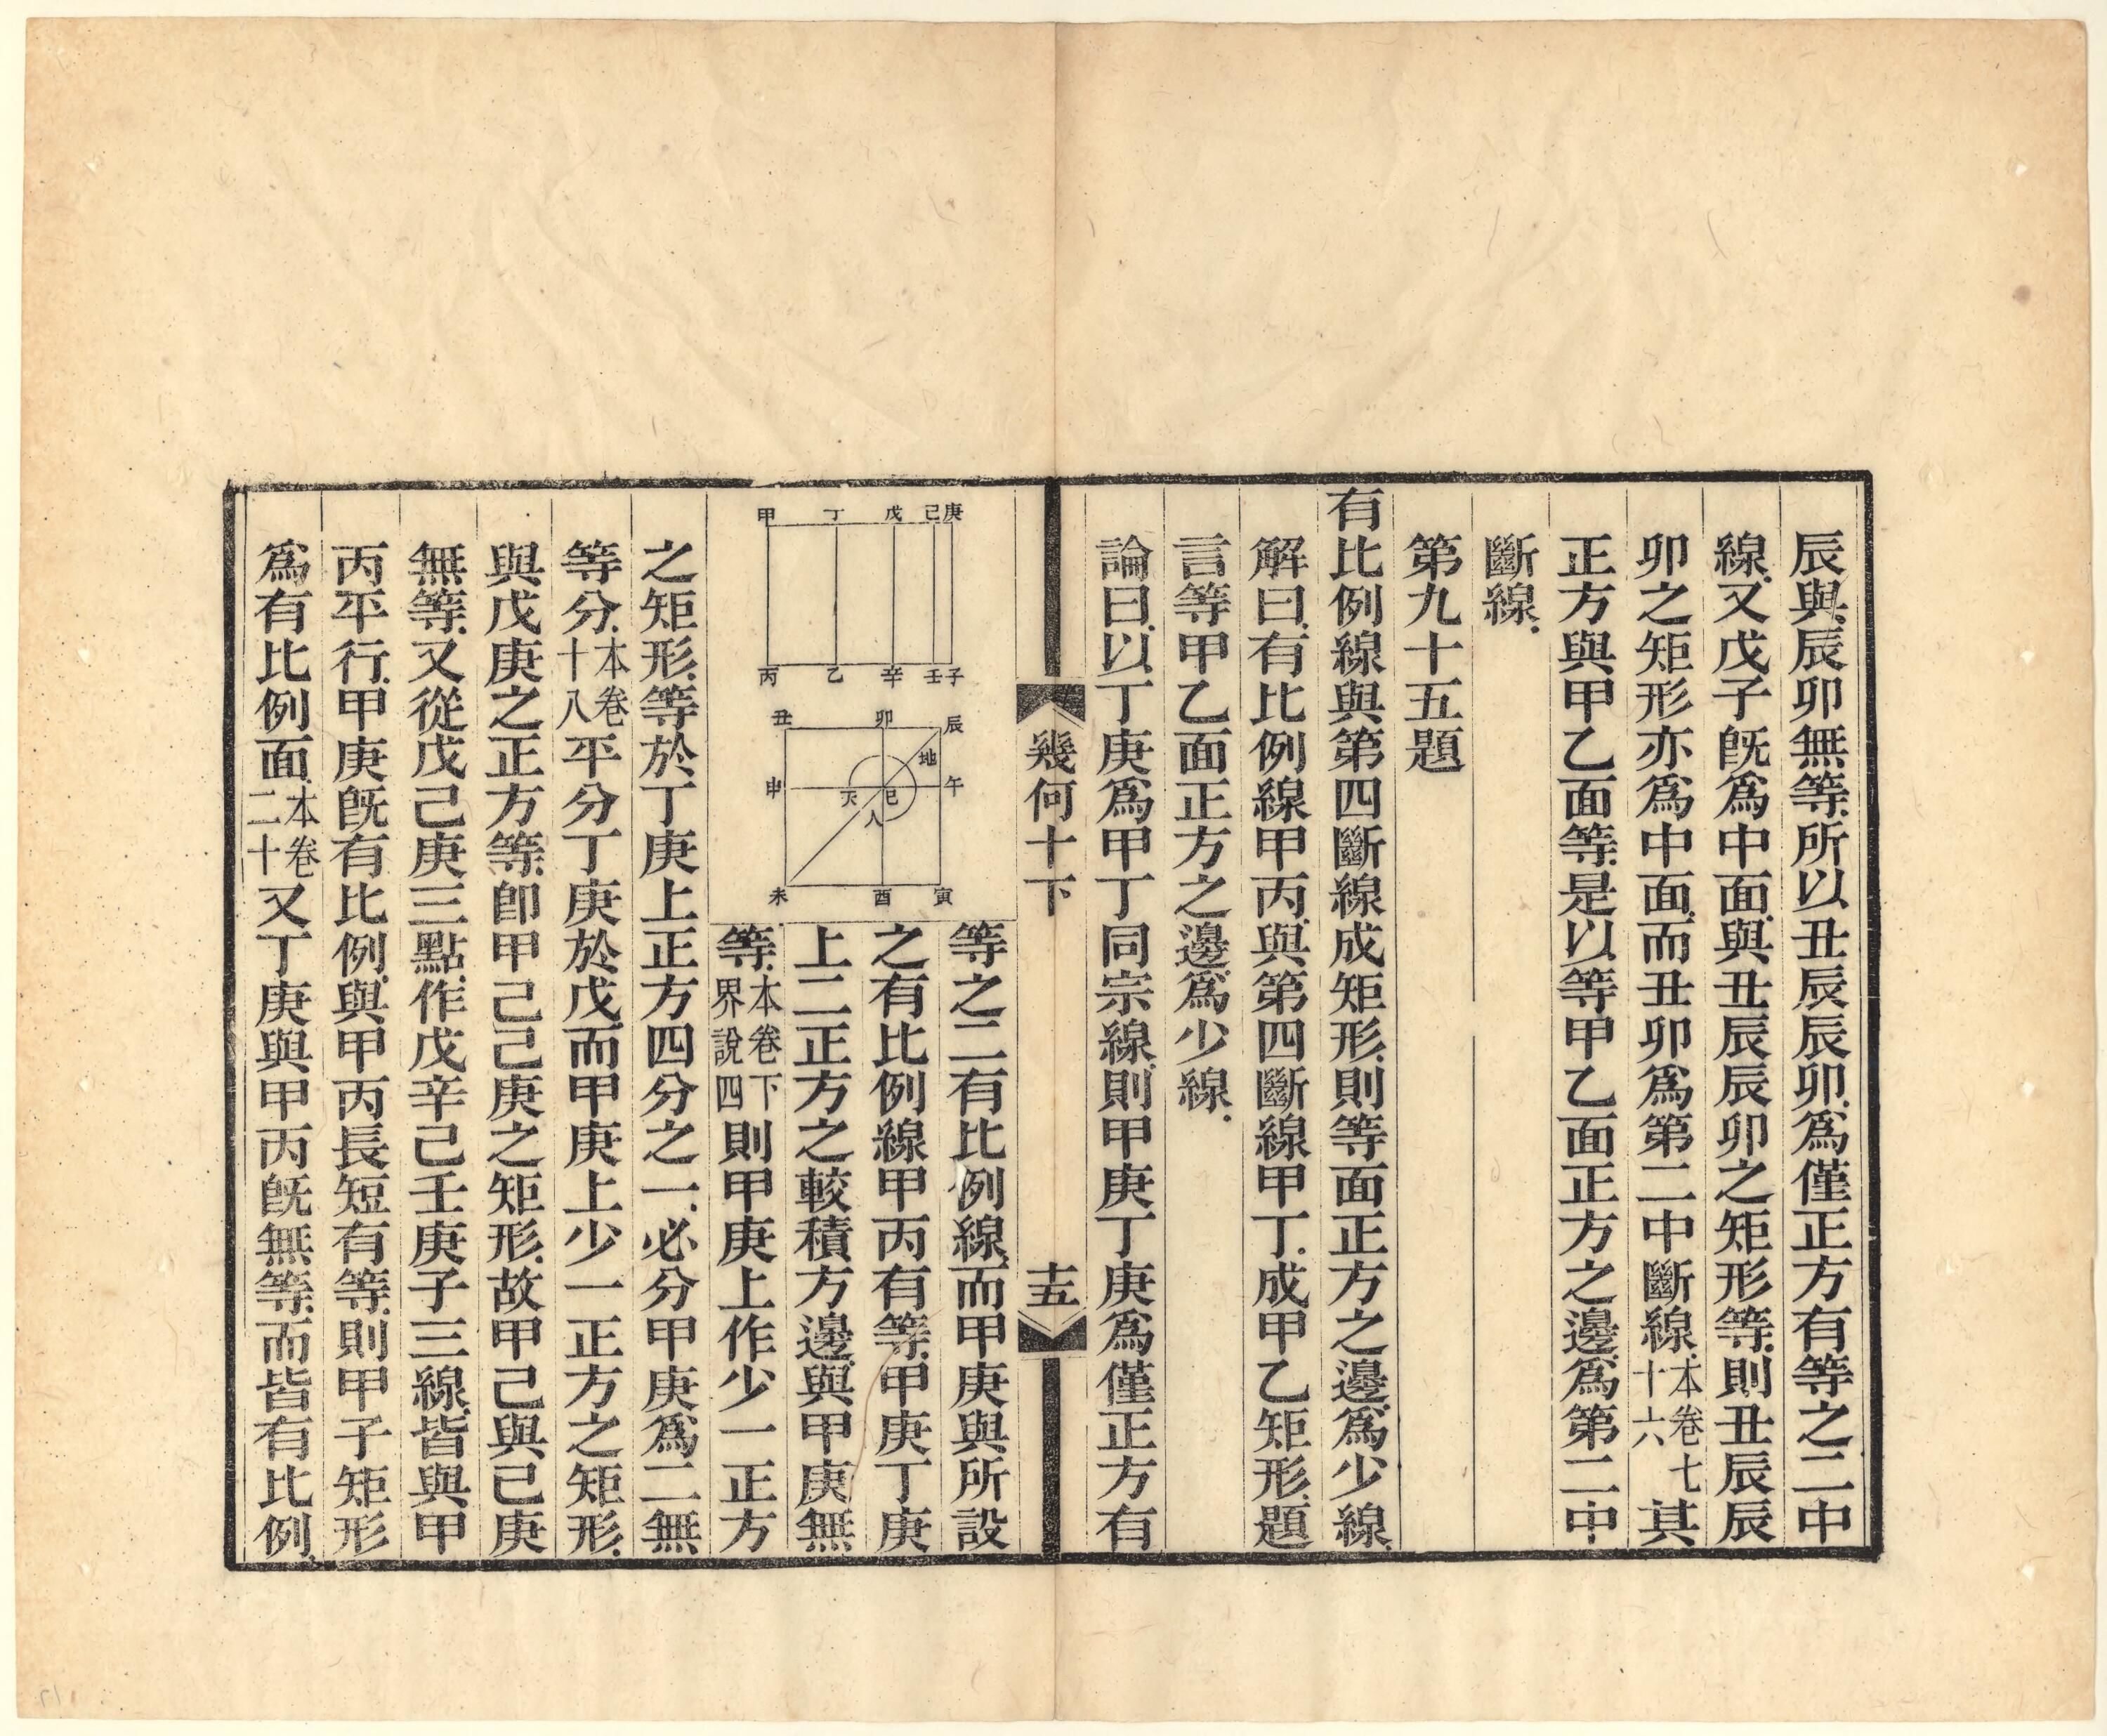 辰與辰卯無等.所以丑辰辰卯.爲僅正方有等之二中
線.又戊子旣爲中面.與丑辰辰卯之矩形等.則丑辰辰
卯之矩形亦爲中面.而丑卯爲第二中斷線.本卷七十六其
正方與甲乙面等.是以等甲乙面正方之邊.爲第二中
斷線.
第九十五題
有比例線與第四斷線成矩形.則等面正方之邊.爲少線.
解曰.有比例線甲丙.與第四斷線甲丁.成甲乙矩形.題
言等甲乙面正方之邊.爲少線.
論曰.以丁庚爲甲丁同宗線.則甲庚丁庚爲僅正方有
幾何十下
十五
等之二有比例線.而甲庚與所設
之有比例線甲丙有等.甲庚丁庚
上二正方之較積方邊.與甲庚無
等.本卷下界說四則甲庚上作少一正方
甲
丁
戊
己
庚
丙
乙
辛
壬
子
丑
卯
辰
地
申
天
巳
午
人
未
酉
寅
之矩形.等於丁庚上正方四分之一.必分甲庚爲二無
等分.本卷十八平分丁庚於戊.而甲庚上少一正方之矩形.
與戊庚之正方等.卽甲己己庚之矩形.故甲己與己庚
無等.又從戊己庚三點.作戊辛己壬庚子三線.皆與甲
丙平行.甲庚旣有比例.與甲丙長短有等.則甲子矩形
爲有比例面.本卷二十又丁庚與甲丙旣無等.而皆有比例.